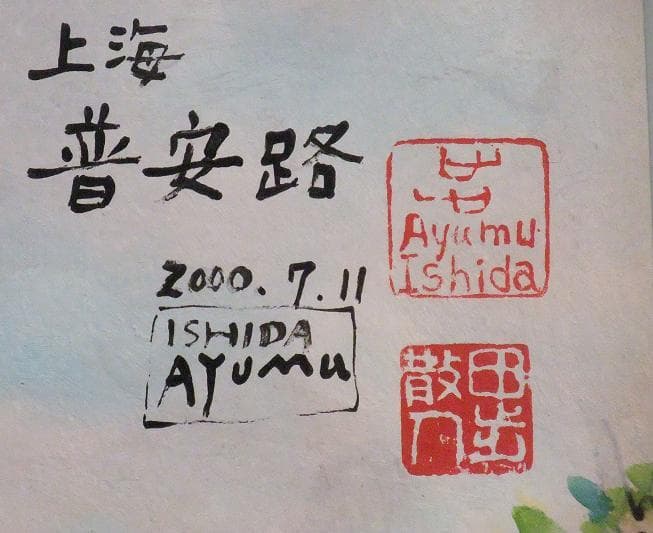 上海
普安路
2000.7.11
ISHIDA
AYUMU
Ayumu
Ishida
散田
人歩